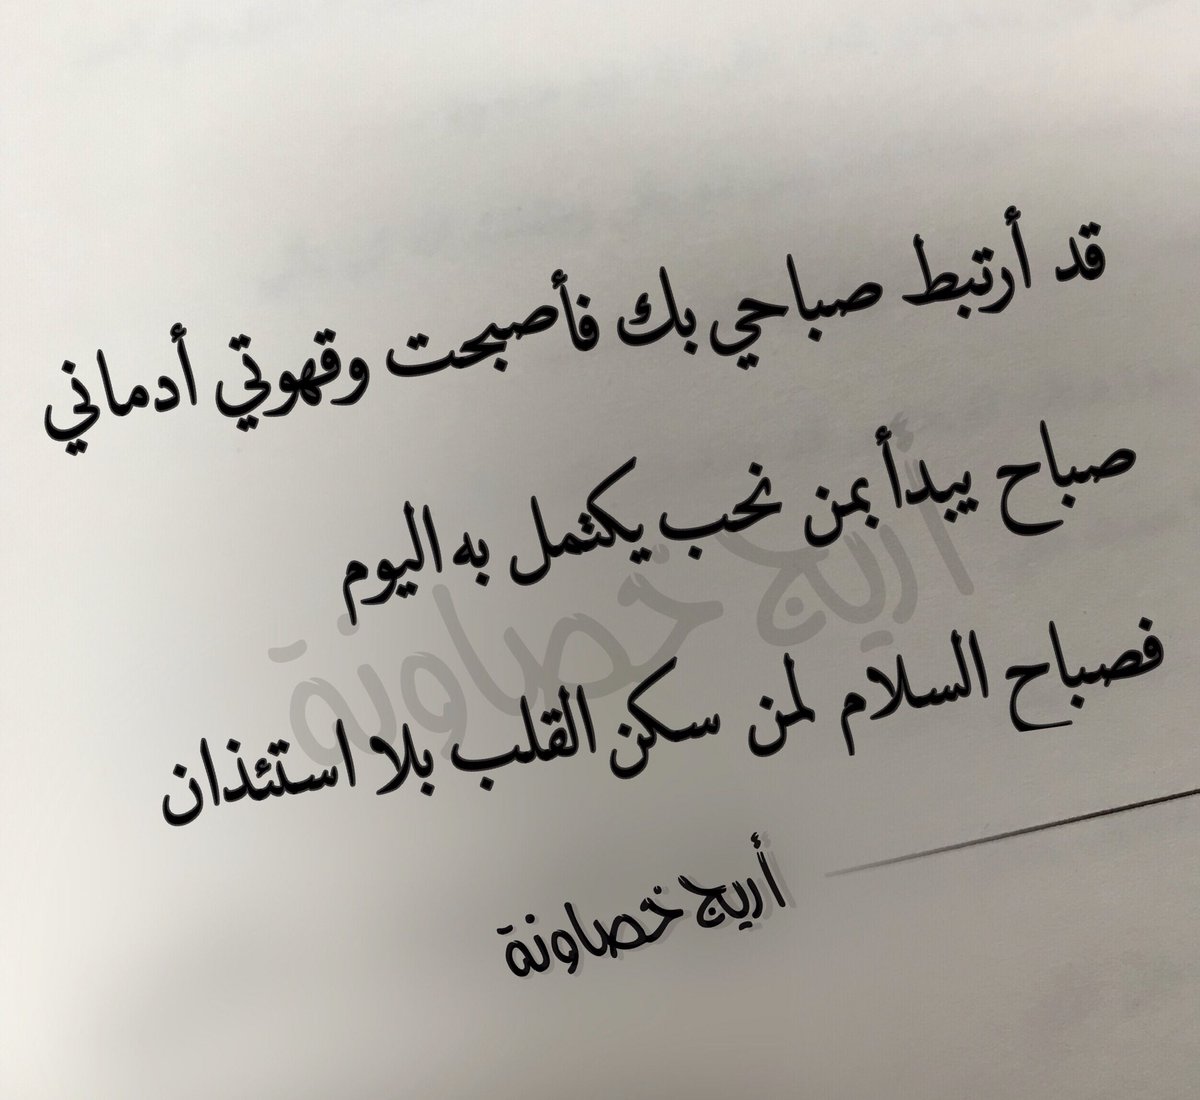 قد أرتبط صباحي بك فأصبحت وقهوتي أدماني
صباح يبدأ بمن نحب يكثمل به اليوم
أريج خصاونة
فصباح السلام لمن سكن القلب بلا استئذان
أريج خصاونة